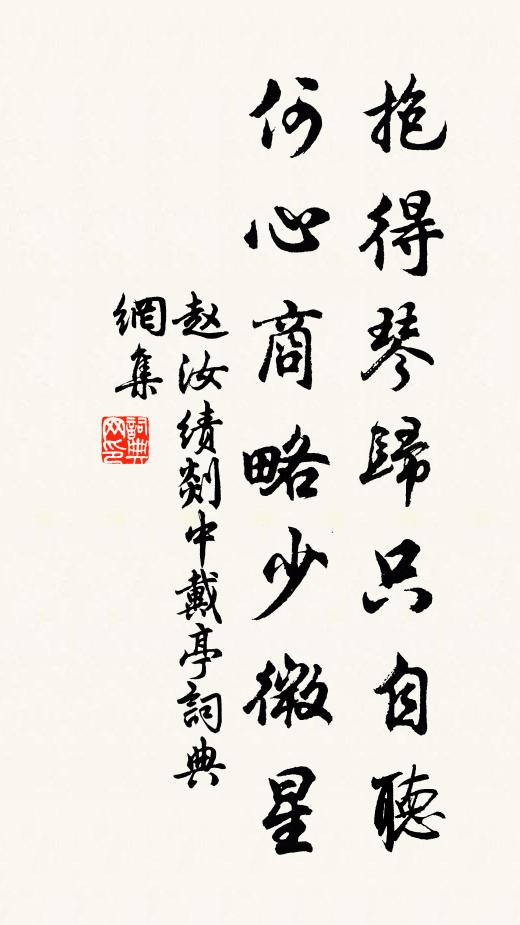 抱得琴歸只自聽
何心商略少微星
赵汝績剡中戴亭詞典
網集
詞典網印